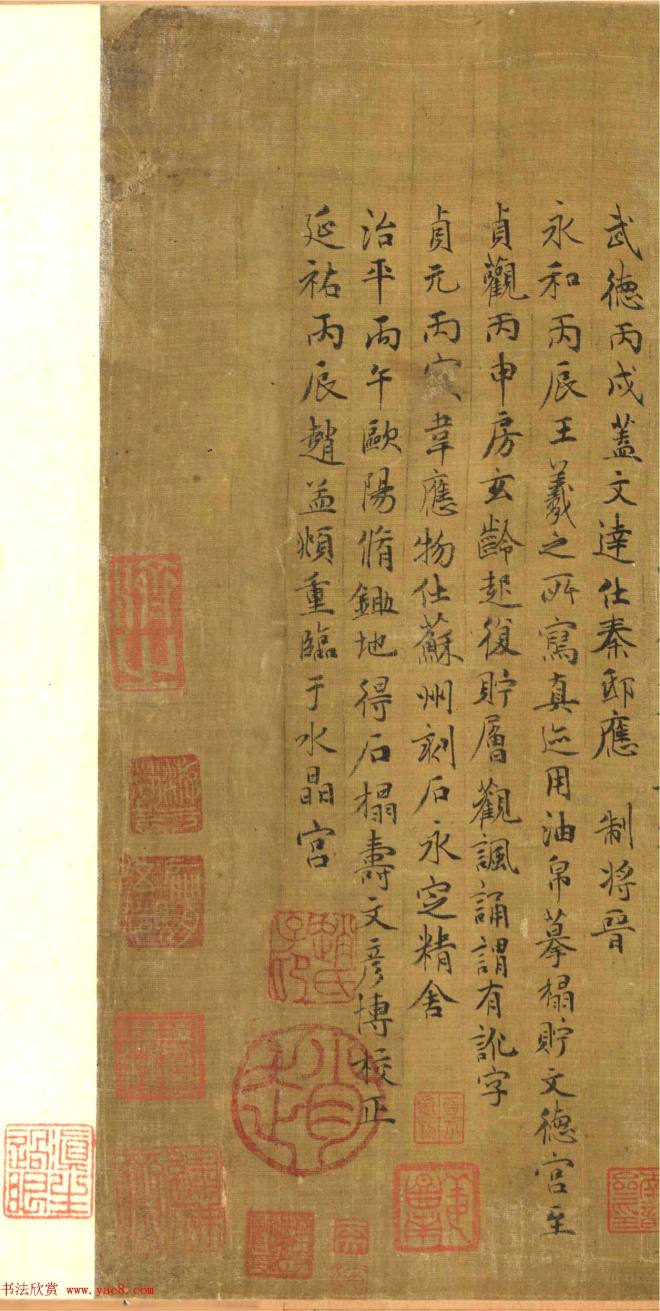 武德丙戌蓋文達仕秦邸應 制將晉
永和丙辰王羲之所寫真迹用油帛摹榻貯文德宮至
貞觀丙申房玄齡起復貯層觀諷誦謂有訛字
貞元丙穴韋應物仕蘇州刻石永定精舍
治平丙午歐陽脩鋤地得石榻壽文彥博校正
延祐丙辰趙孟頫重臨于水晶宮
趙氏子卬
書法欣賞 www.yac8.com